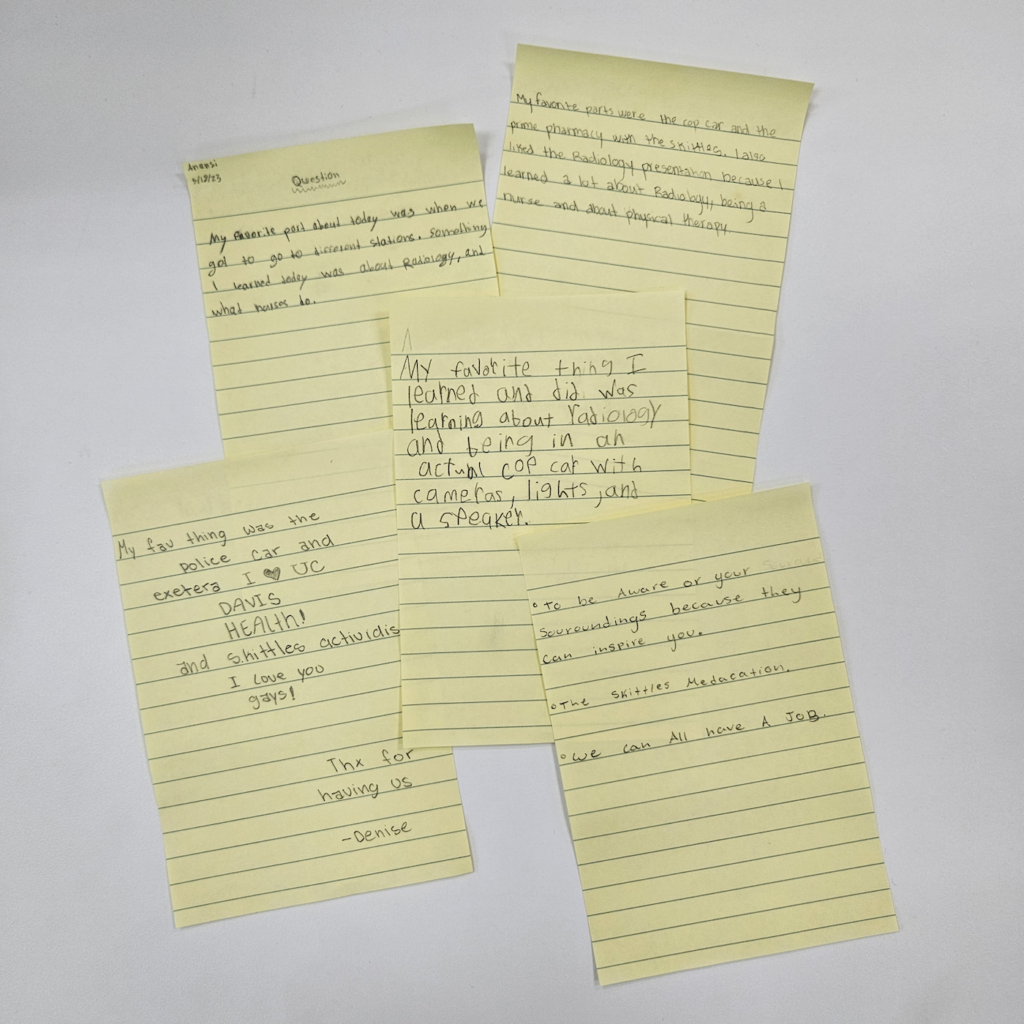 Anansi
5/12/23
Question
My favorite part about today was when we
got to go to different stations. Something
I learned today was about Radiology, and
what nurses do.
My favorite parts were the cop car and the
prime pharmacy with the skittles. I also
liked the Radiology presentation because I
learned a lot about Radiology, being a
nurse and about physical therapy.
My favorite thing I
learned and did was
learning about radiology
and being in an
actual cop car with
cameras, lights, and
a speaker.
My fav thing was the
police car and
exetera I ♥ UC
DAVIS
HEALTH!
and skittles actividis
I love you
gays!
Thx for
having us
-Denise
• To be Aware or your
souroundings because they
can inspire you.
• The Skittles Medacation.
• We can All have A JOB.